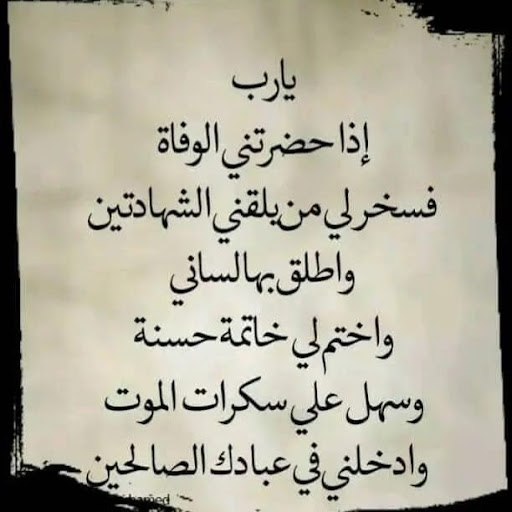 يارب
إذا حضرتني الوفاة
فسخر لي من يلقني الشهادتين
واطلق بها لساني
واختم لي خاتمة حسنة
وسهل علي سكرات الموت
وادخلني في عبادك الصالحين